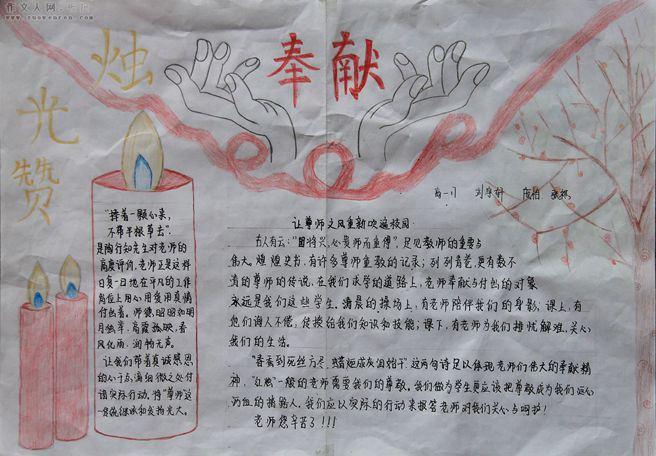 作文人网
www.zuowenren.com
烛光赞
奉献
高一·1
让尊师之风重新吹遍校园
"捧着一颗心来,
不带半根草去".
是陶行知先生对老师的
高度评价,老师正是这样
日复一日地在平凡的工作
岗位上用心用爱用真情
付出着,师德,昭昭如明
月独举,高霞孤映,春
风化雨,润物无声.
让我们带着真诚感恩
的心,于点滴细微之处付
诸实际行动,将"尊师"这
一美德继承和发扬光大.
古人有云:"国将兴,心贵师而重傅",足见教师的重要与
伟大,煌煌史书,有许多尊师重教的记录;列列青艺,更有数不
清的尊师的传说,在我们求学的道路上,老师奉献与付出的对象
永远是我们这些学生,清晨的操场上,有老师陪伴我们的身影;课上,有
他们诲人不倦,传授给我们知识和技能;课下,有老师为我们排忧解难,关心
我们的生活.
"春蚕到死丝方尽,蜡炬成灰泪始干"这两句诗足以体现老师们伟大的奉献精
神,"红烛"一般的老师需要我们的尊敬,我们做为学生更应该把尊敬成为我们
的 我们应以实际的行动来报答老师对我们关心与呵护!
老师您辛苦了!!!